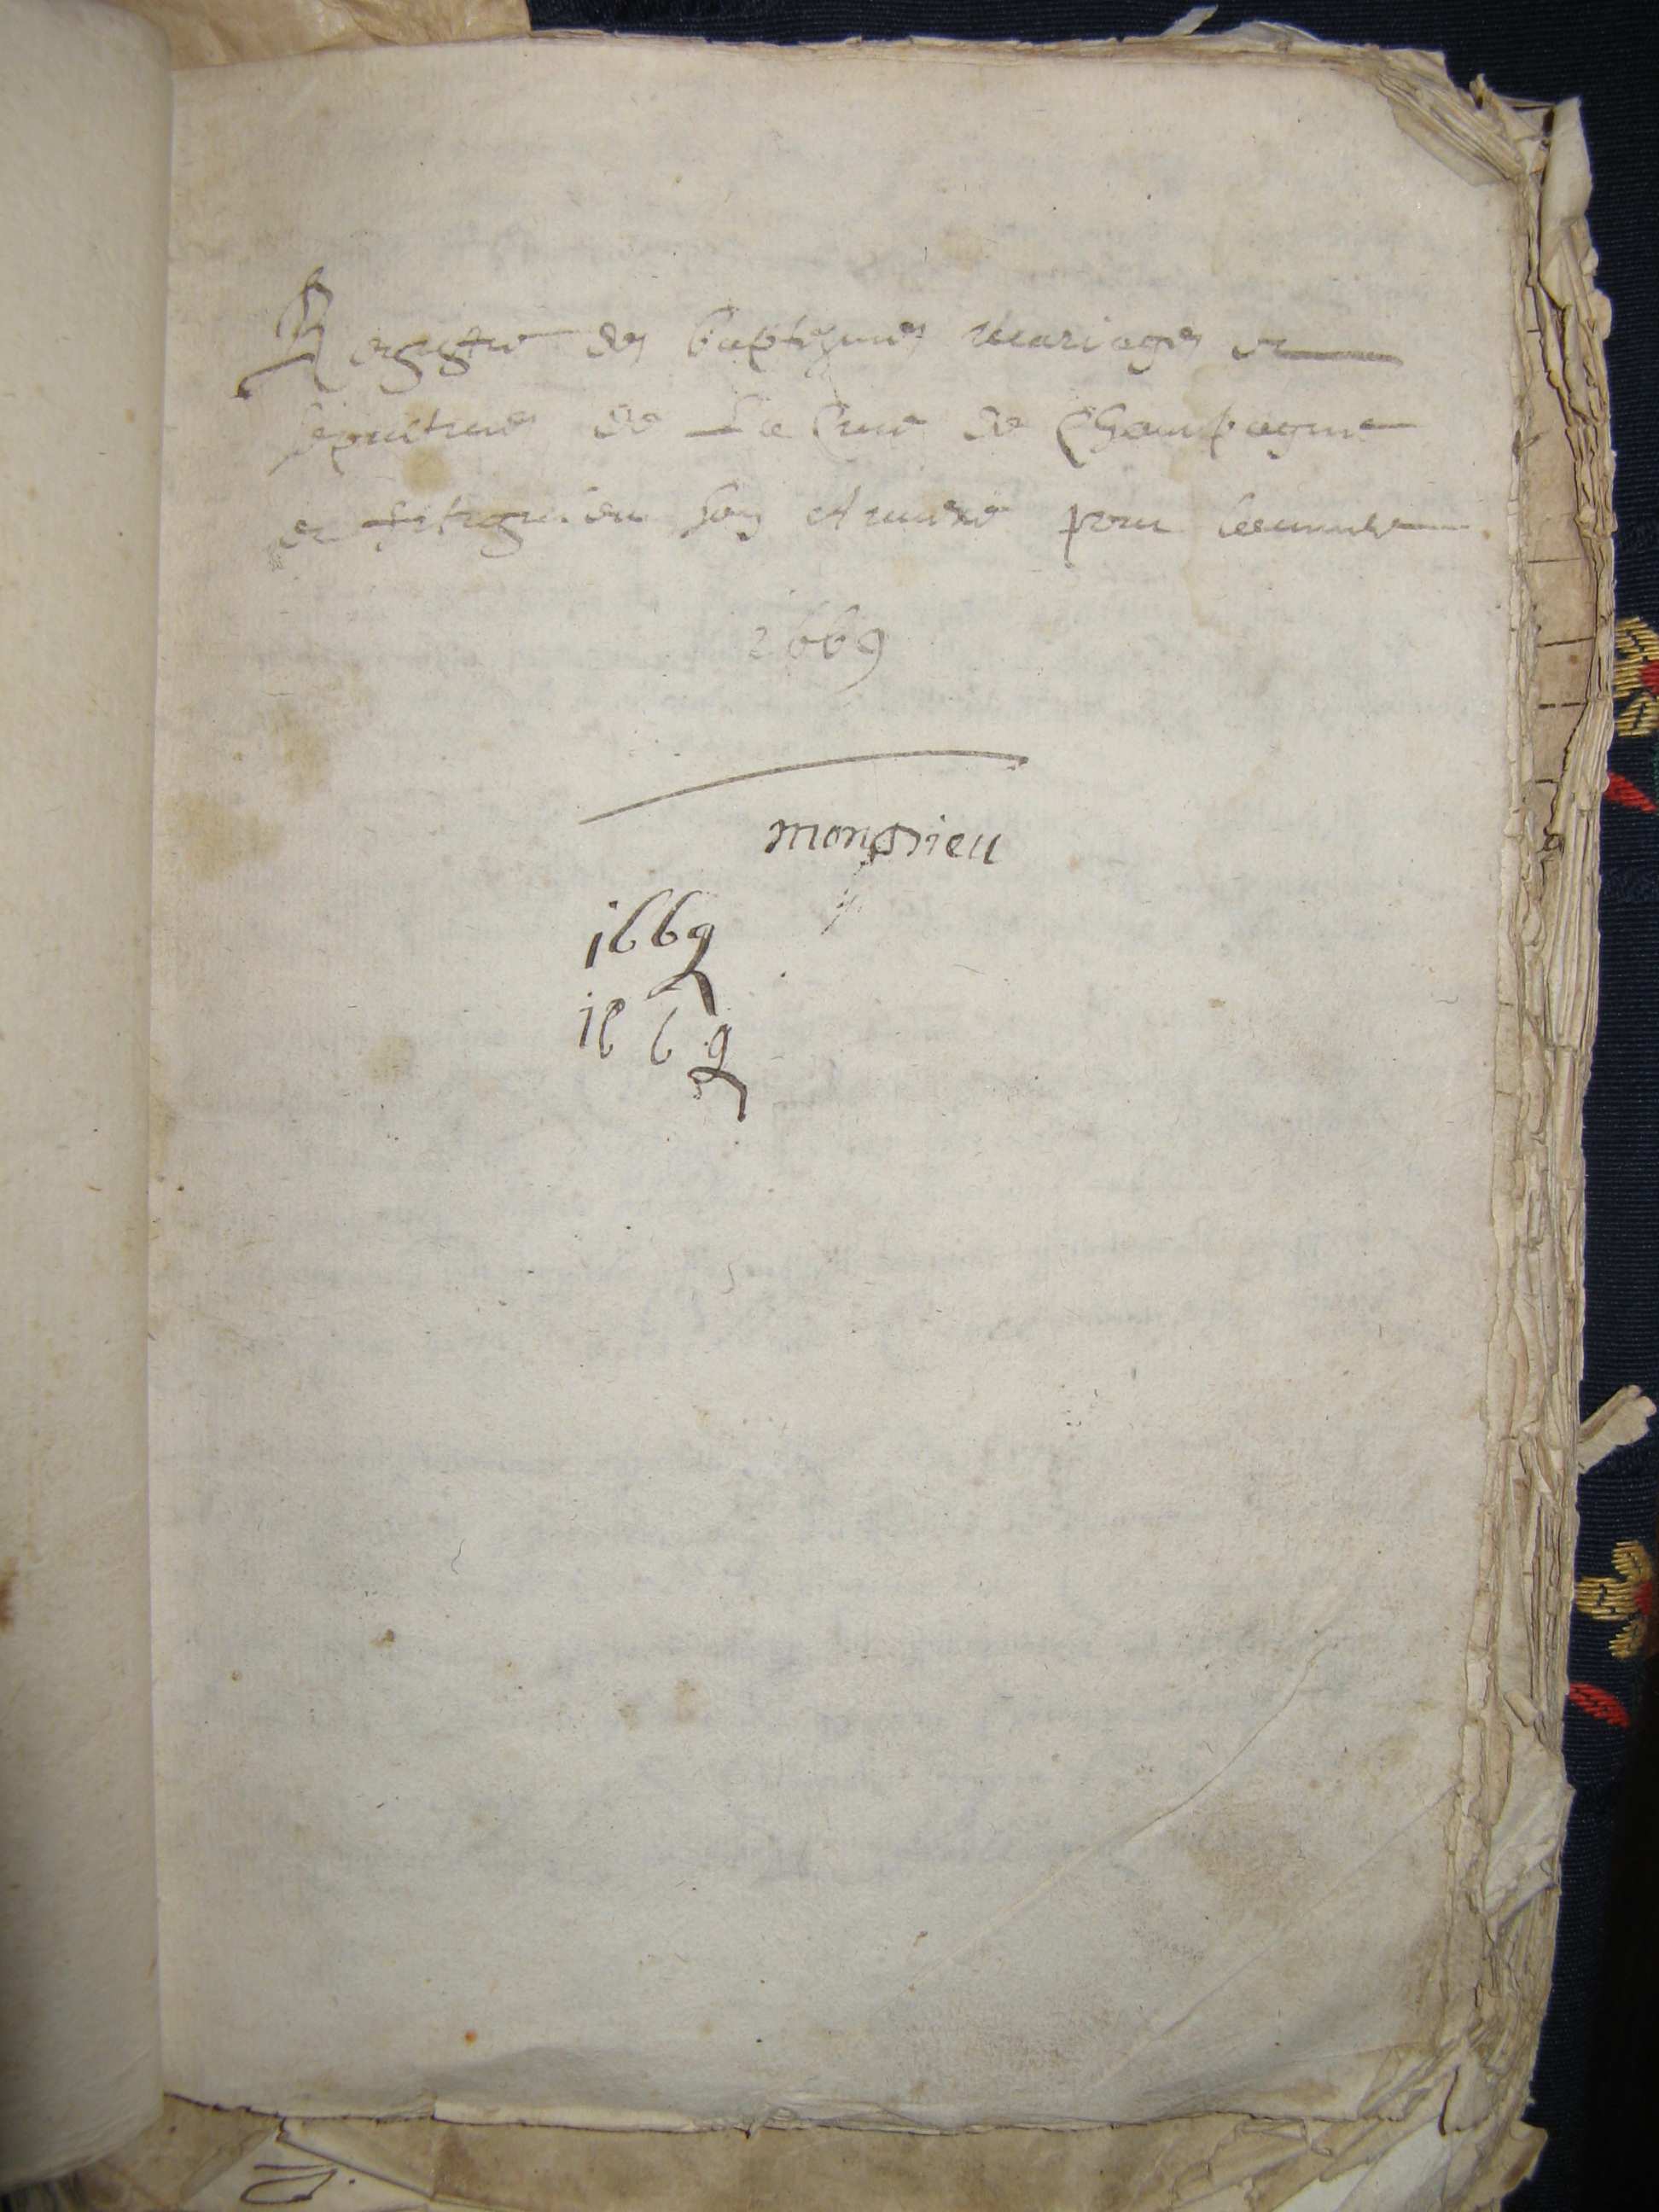 Regystre des baptizmes mariages et
sepultures de La Cure de Champagne
et son Annexe pour lannee
1669
monsrieu
1669
1669